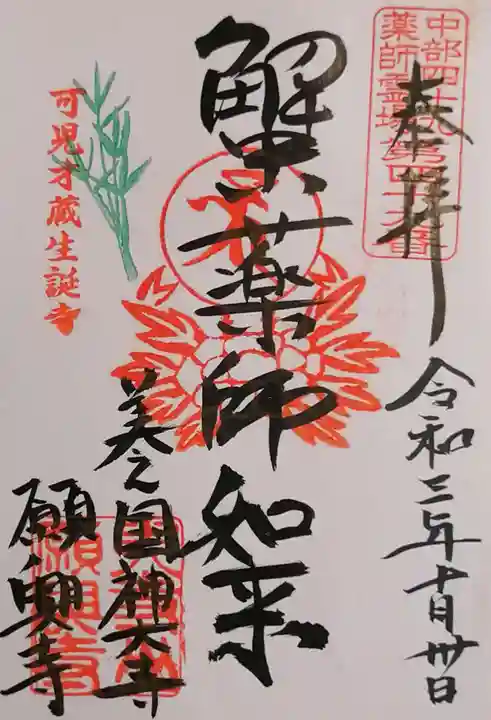 中部四十九
薬師霊場第四十六番
奉拝
令和三年十月卅日
蟹薬師如来
美之国神大寺
願興寺
可児才蔵生誕寺